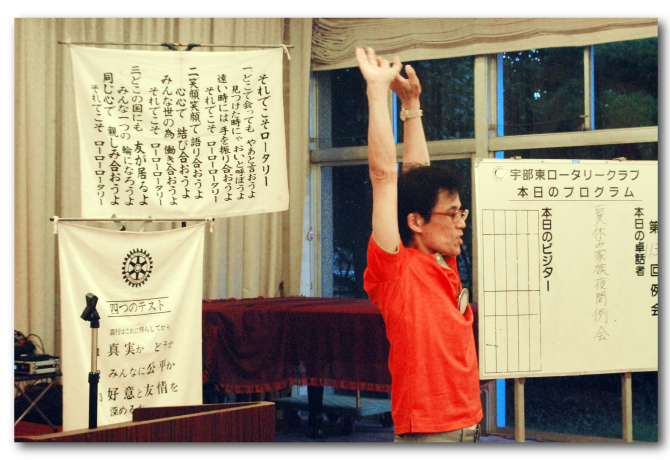 それでこそロータリー
一どこで会っても やあと言おうよ
見つけた時にゃ おいと呼ぼうよ
遠い時には 手を振り合おうよ
それでこそ ローローロータリー
二笑顔笑顔で 語り合おうよ
心と心で 結び合おうよ
みんな世の為 働き合おうよ
それでこそ ローローロータリー
三どこの国にも 友が居るよ
みんな一つの 輪になろうよ
同じ心で 親しみ合おうよ
それでこそ ローローロータリー
四つのテスト
真実か どうか
みんなに公平か
好意と友情を
深めるか
宇部東ロータリークラブ
本日のプログラム
第
回例会
本日の卓話者
夏休み家族夜間例会
本日のビジター